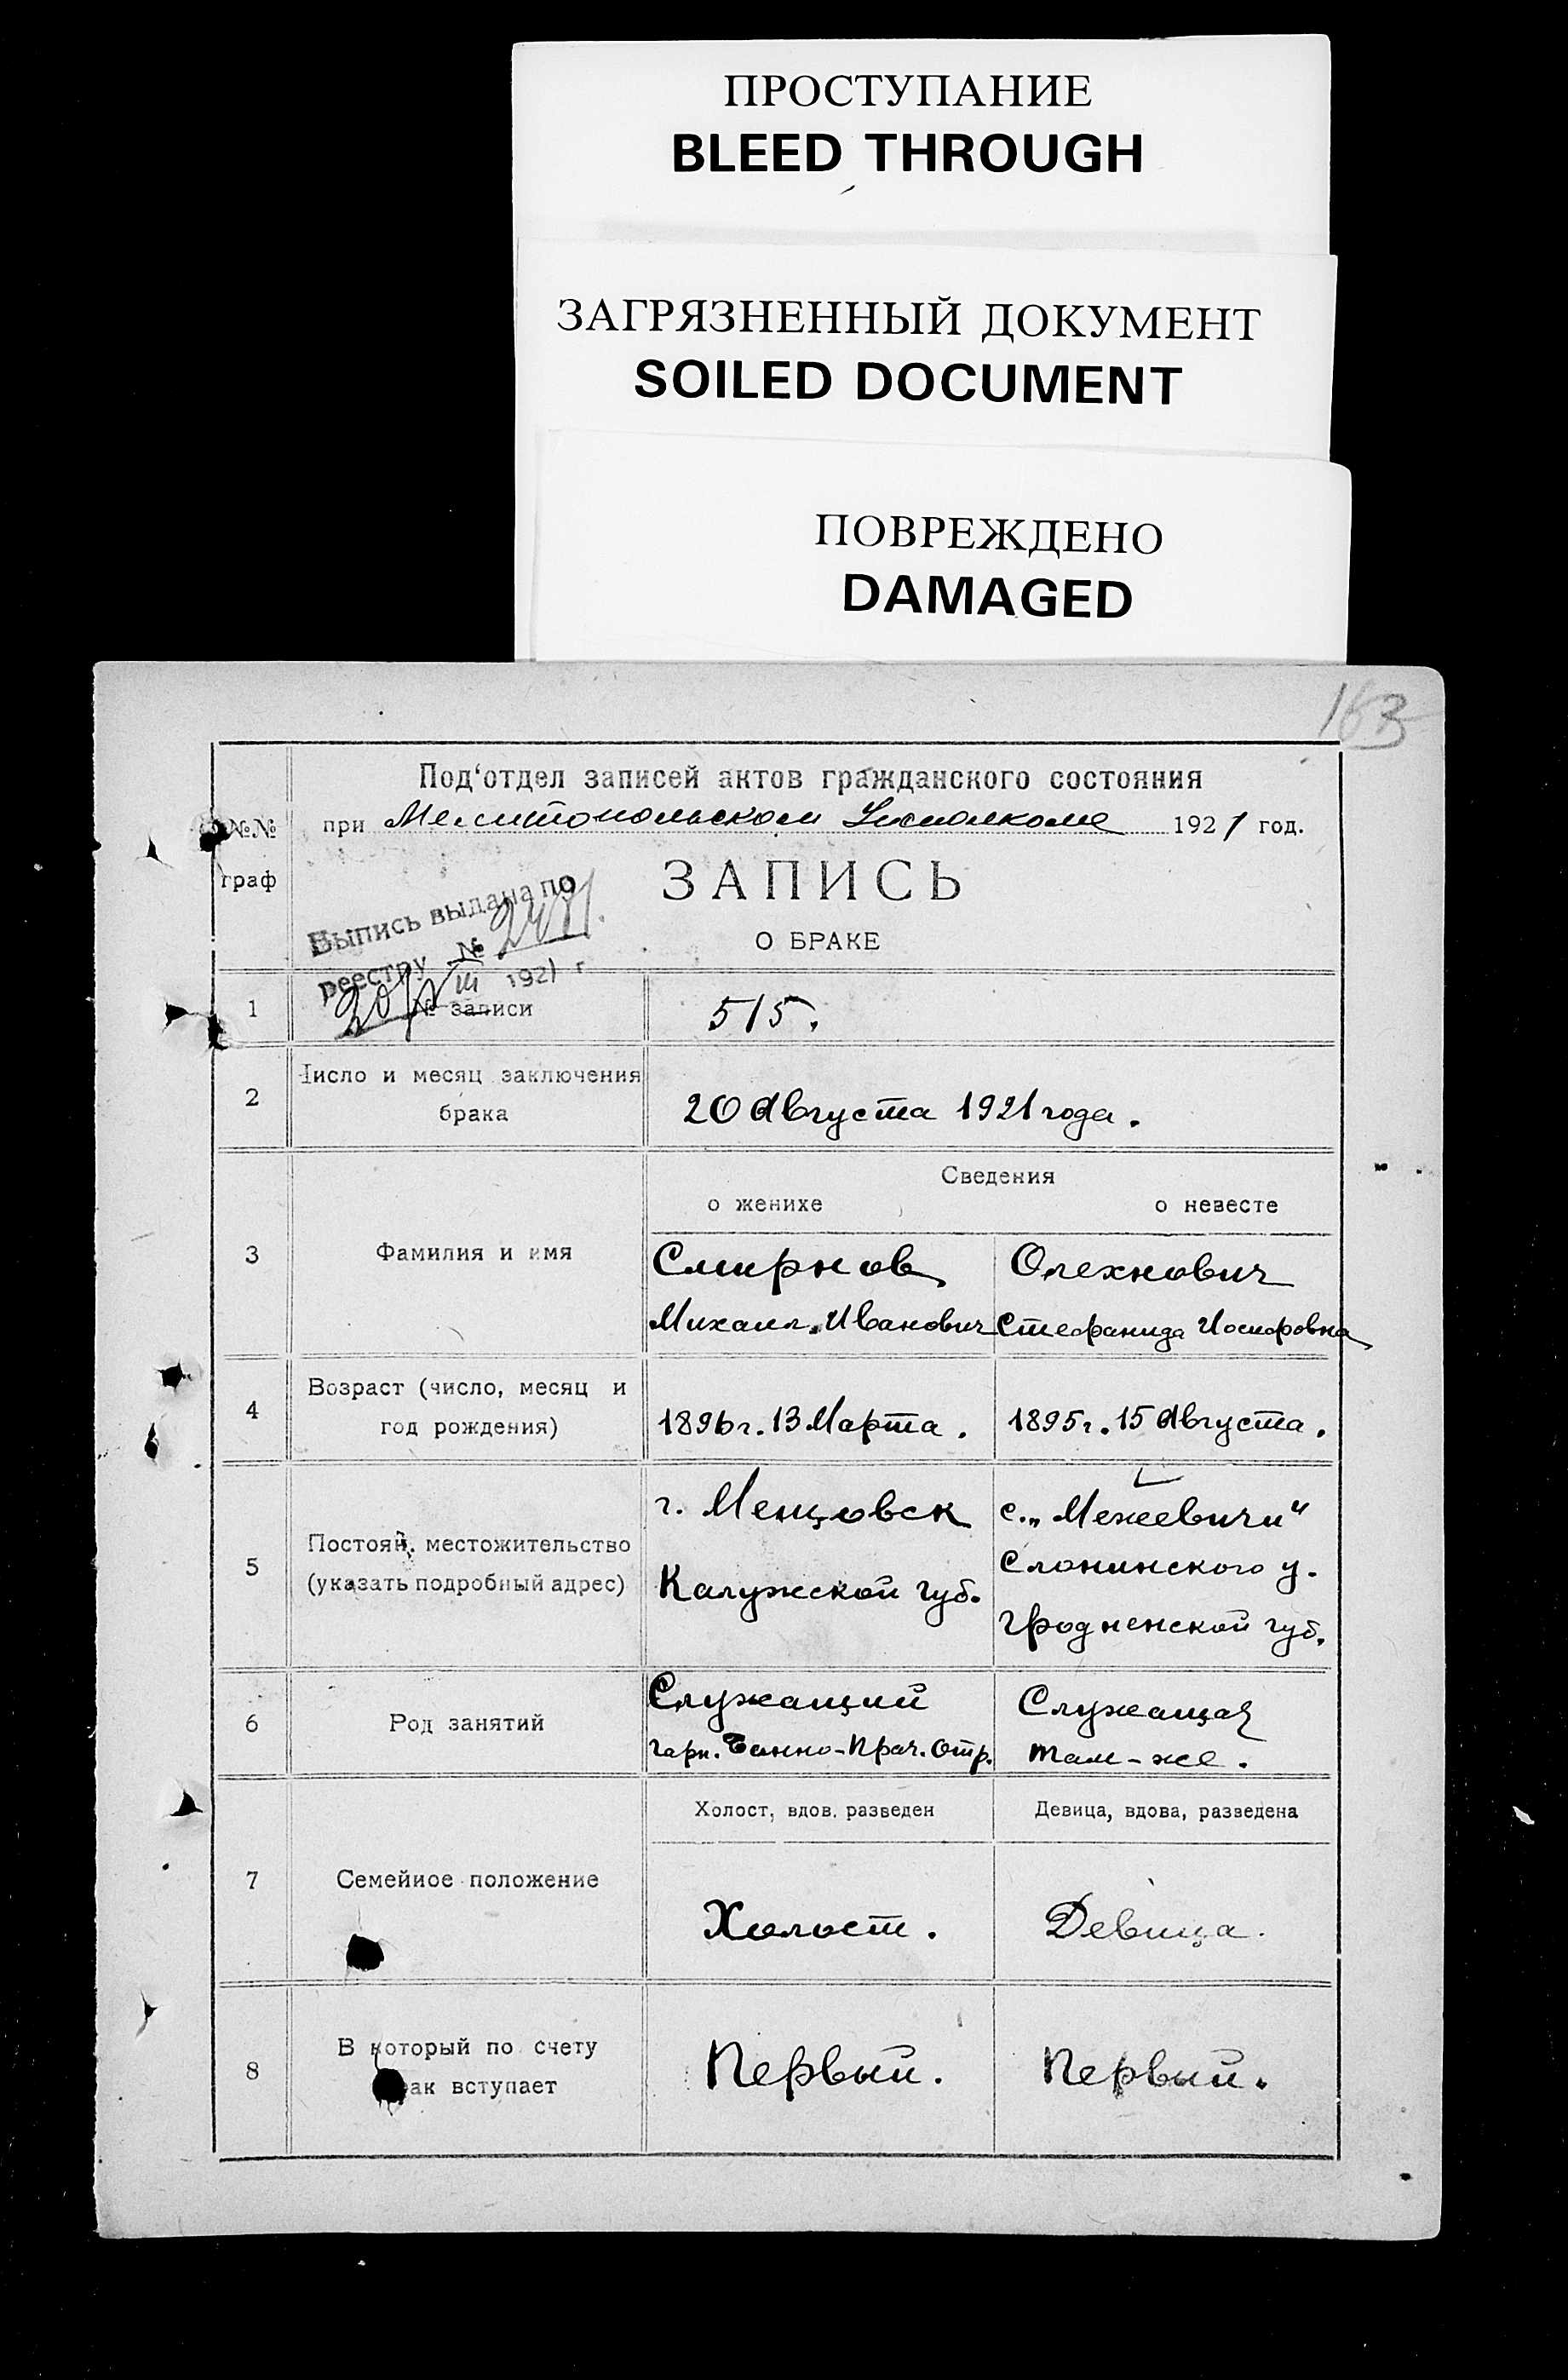 ПРОСТУПАНИЕ
BLEED THROUGH
ЗАГРЯЗНЕННЫЙ ДОКУМЕНТ
SOILED DOCUMENT
ПОВРЕЖДЕНО
DAMAGED
163
Под'отдел записей актов гражданского состояния
№№ граф
при Мелитопольском Исполкоме 1921 год.
ЗАПИСЬ
О БРАКЕ
Выпись выдана по
реестру №
III 1921 г
1 № записи 515.
2 Число и месяц заключения
брака
20 Августа 1921 года.
Сведения
о женихе о невесте
3 Фамилия и имя
Смирнов Олехнович
Михаил Иванович Стефанида Иосифовна
4 Возраст (число, месяц и
год рождения)
1896 г. 13 Марта. 1895 г. 15 Августа.
5 Постоян. местожительство
(указать подробный адрес)
г. Мещовск
Калужской губ.
с. „Межевичи"
Слонинского у.
Гродненской губ.
6 Род занятий
Служащий
Гарн. Банно-Прач. Отр.
Служащая
там-же.
7 Семейное положение
Холост, вдов, разведен Девица, вдова, разведена
Холост. Девица.
8 В который по счету
брак вступает
Первый. Первый.